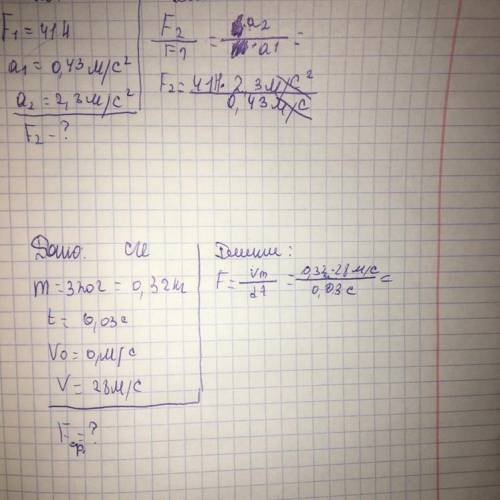 F₁ = 41Н
a₁ = 0,43 м/с²
a₂ = 2,3м/с²
F₂ - ?
F₂/F₁ = a₂/a₁ =
F₂ = 41Н · 2,3м/с² / 0,43 м/с
Дано: СИ
m = 320г = 0,32кг
t = 0,03с
V₀ = 0м/с
V = 28м/с
Fср = ?
Решение:
F = Vm/dt = 0,32·28м/с / 0,03 с =